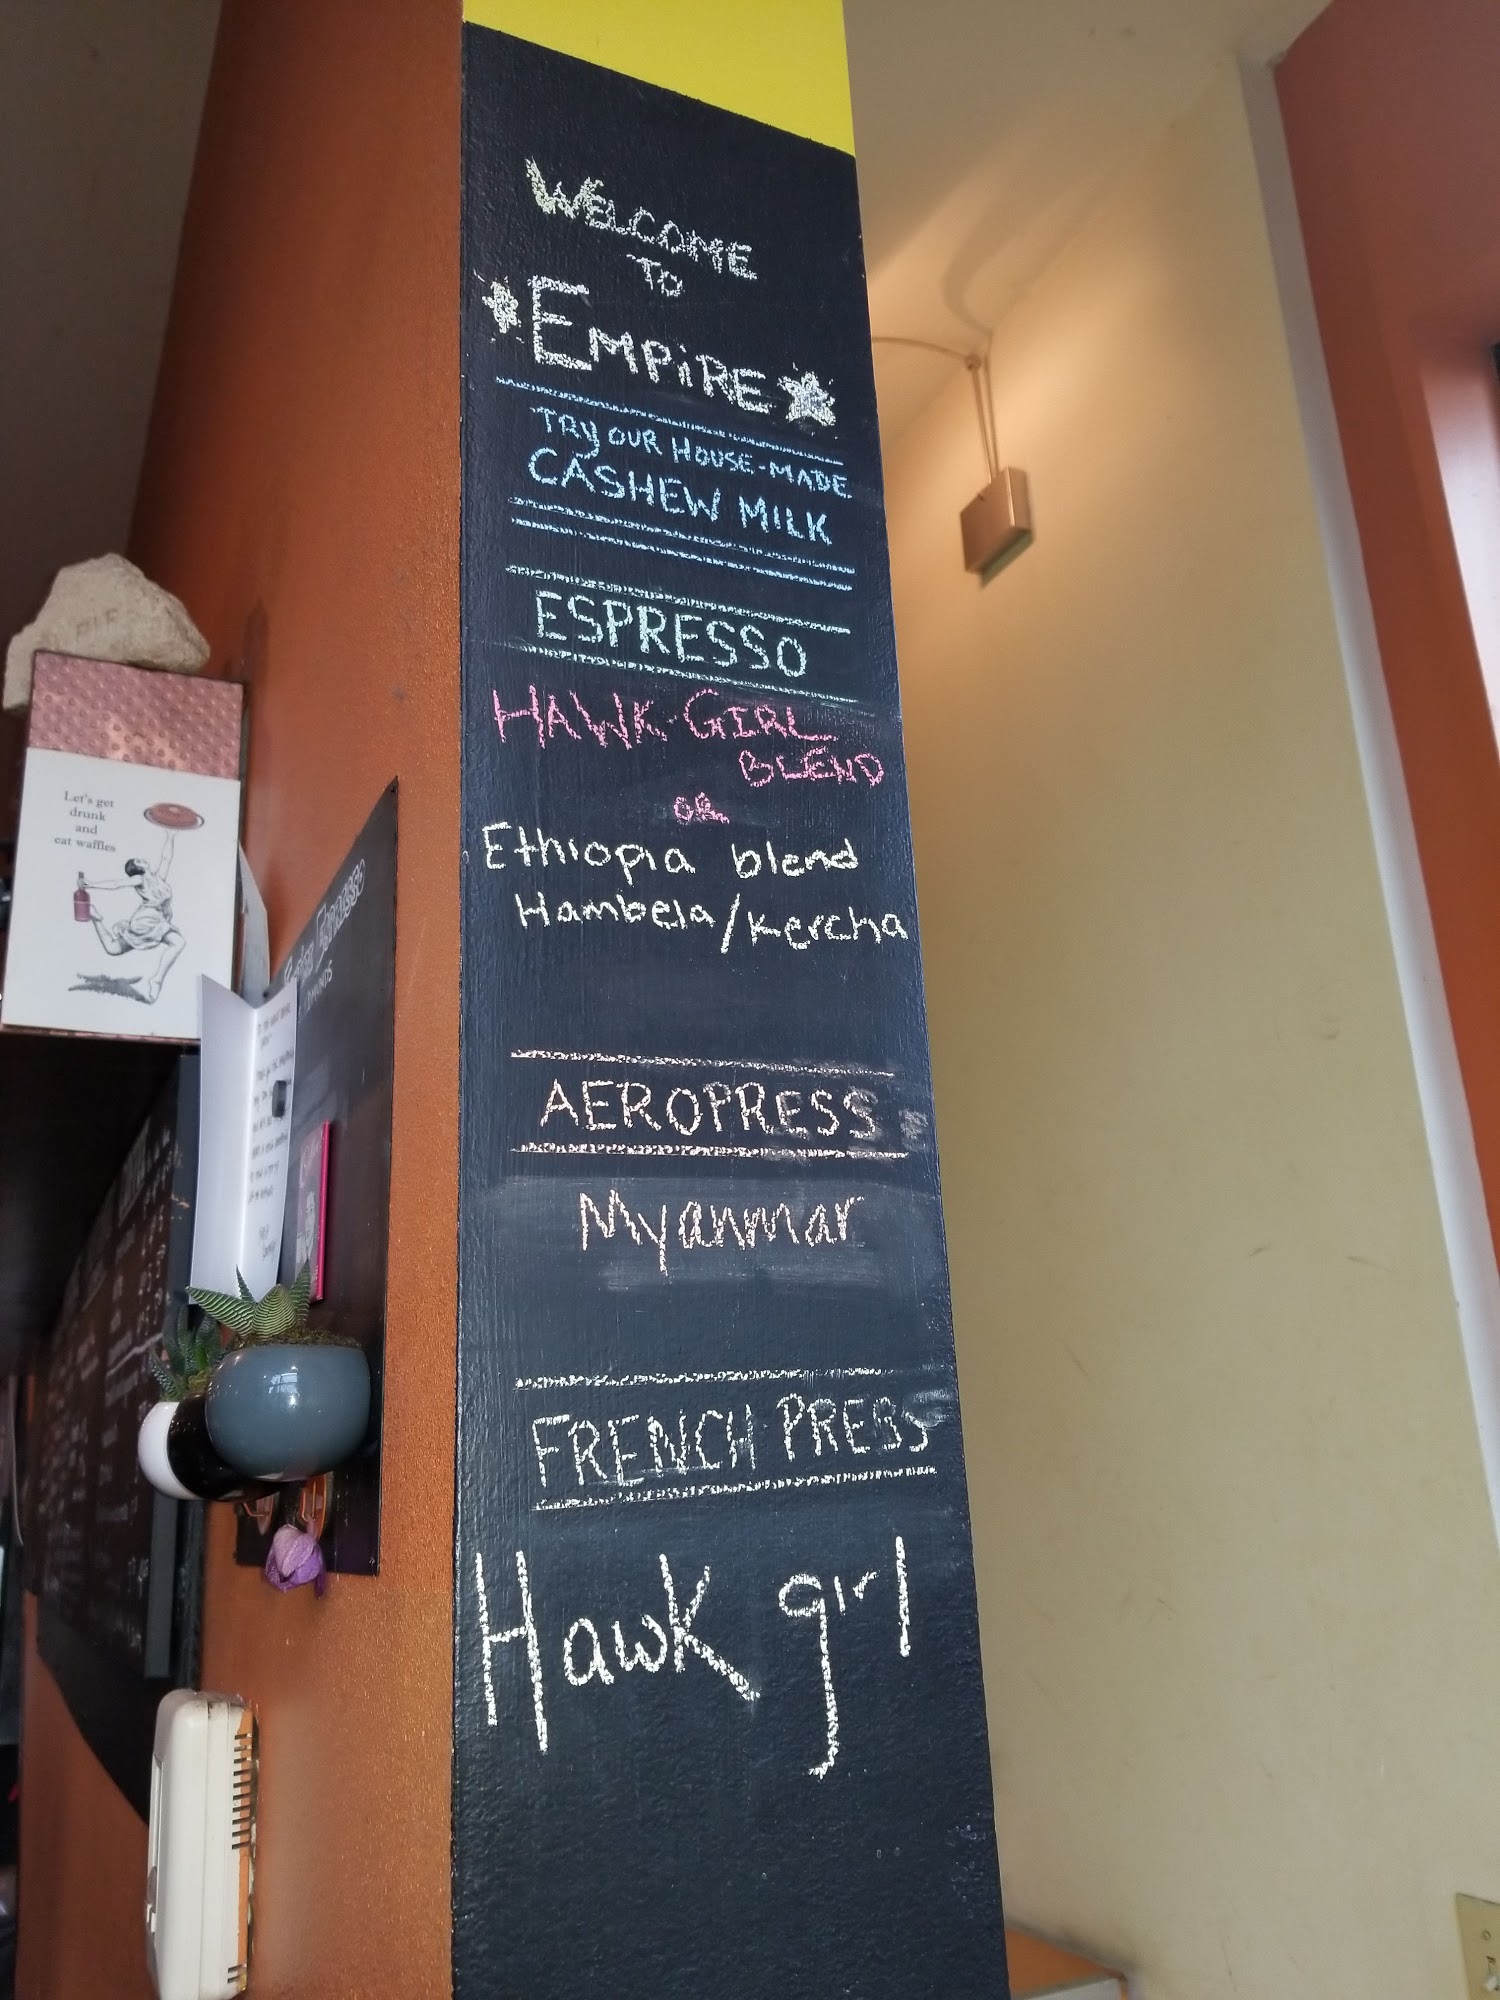 WELCOME
TO
EMPiRE
TRY OUR HOUSE-MADE
CASHEW MILK
ESPRESSO
HAWK-GIRL
BLEND
OR
Ethiopia blend
Hambela/Kercha
AEROPRESS
Myanmar
FRENCH PRESS
Hawk girl
Let's get
drunk
and
eat waffles